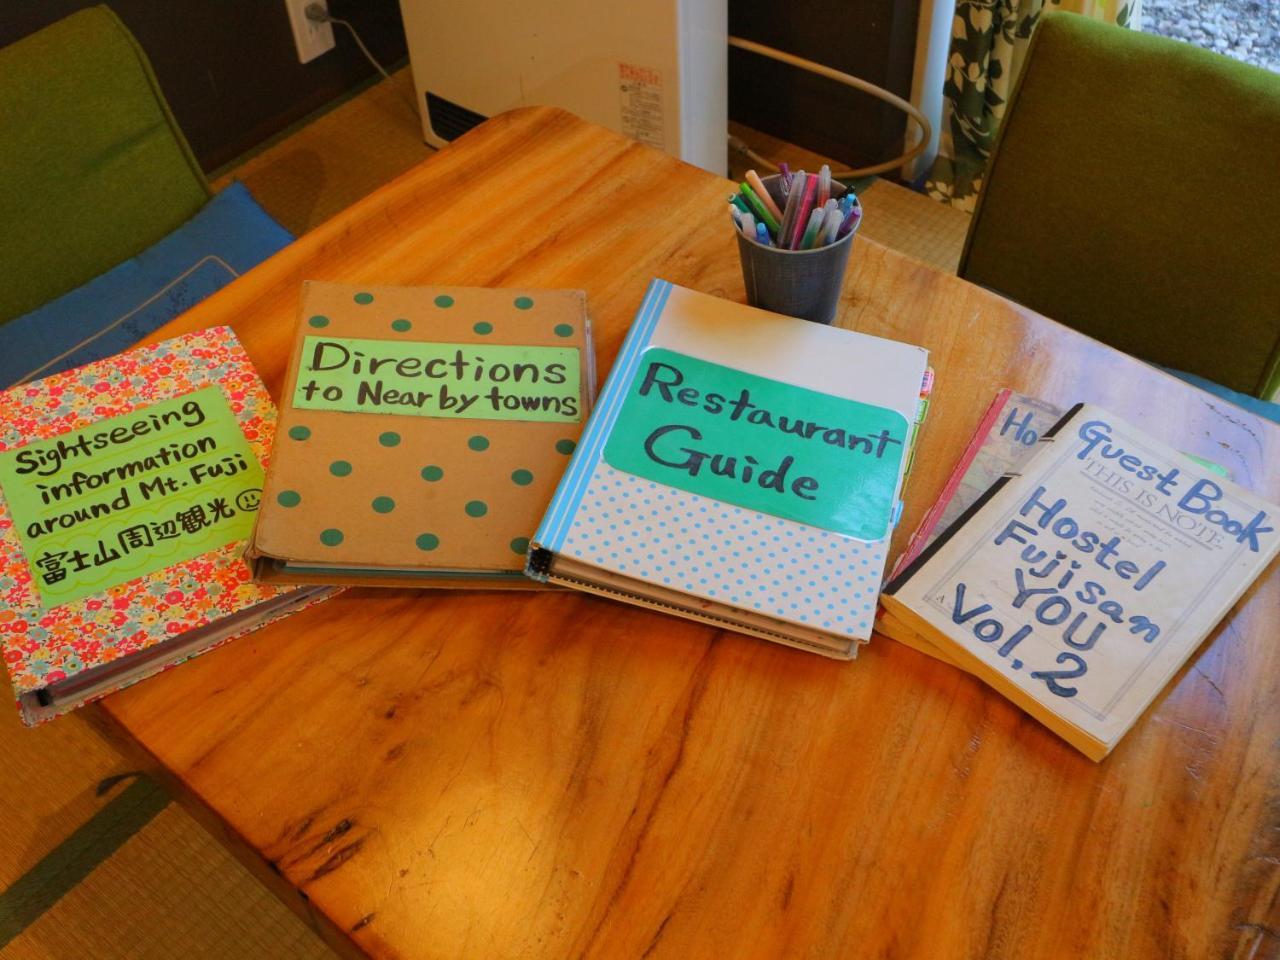 Sightseeing
information
around Mt. Fuji
富士山周辺観光
Directions
to Nearby towns
Restaurant
Guide
Ho
Guest Book
THIS IS NOTE.
Hostel
Fujisan
YOU
Vol. 2